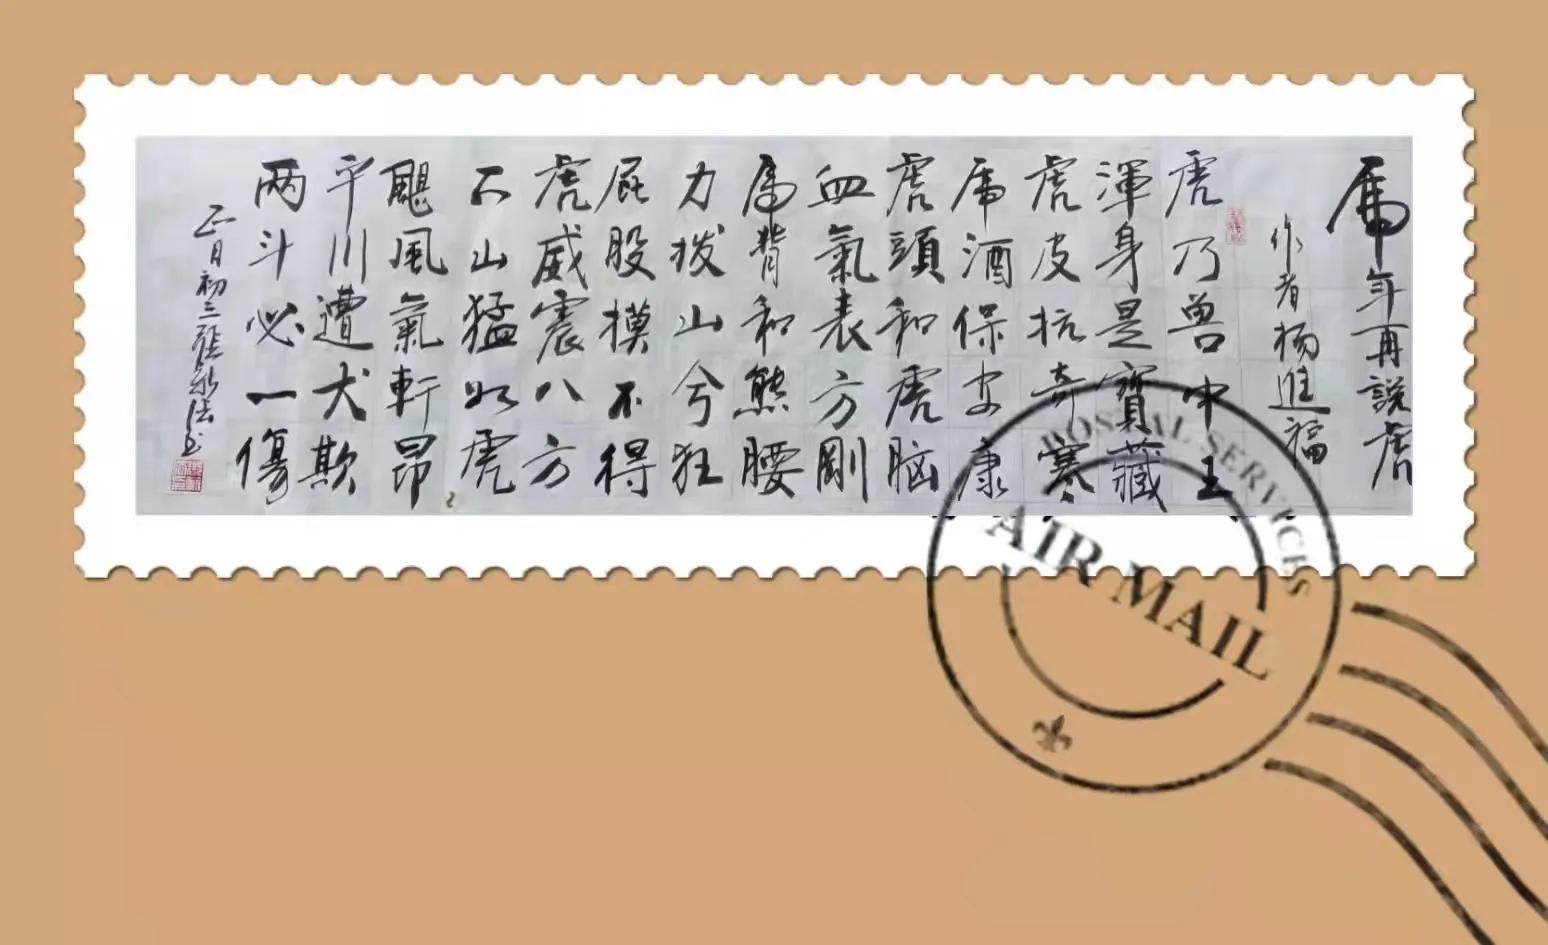 虎年再説虎
作者楊進福
虎乃兽中王
渾身是寶藏
虎皮抗奇寒
虎酒保安康
虎頭和虎脑
血氣表方剛
虎背和熊腰
力拨山兮狂
屁股摸不得
虎威震八方
下山猛如虎
颶風氣軒昂
平川遭犬欺
两斗必一傷
正月初三
POSTAL SERVICES
AIR MAIL